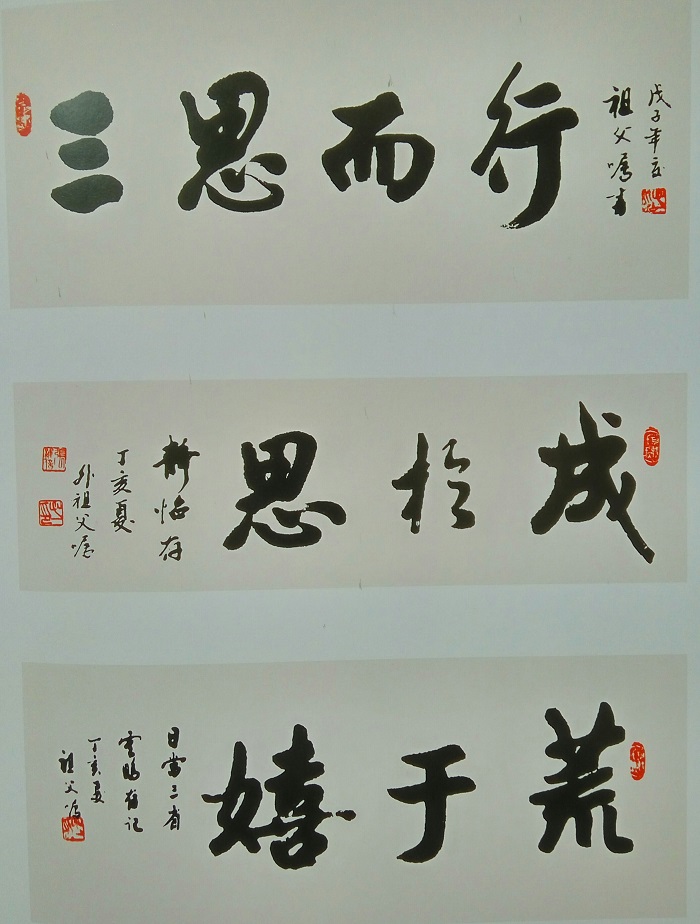 三思而行
戊子年夏
祖父嘱书
成於思
静怡存
丁亥夏
外祖父嘱
荒于嬉
日当三省
丁亥夏
祖父嘱